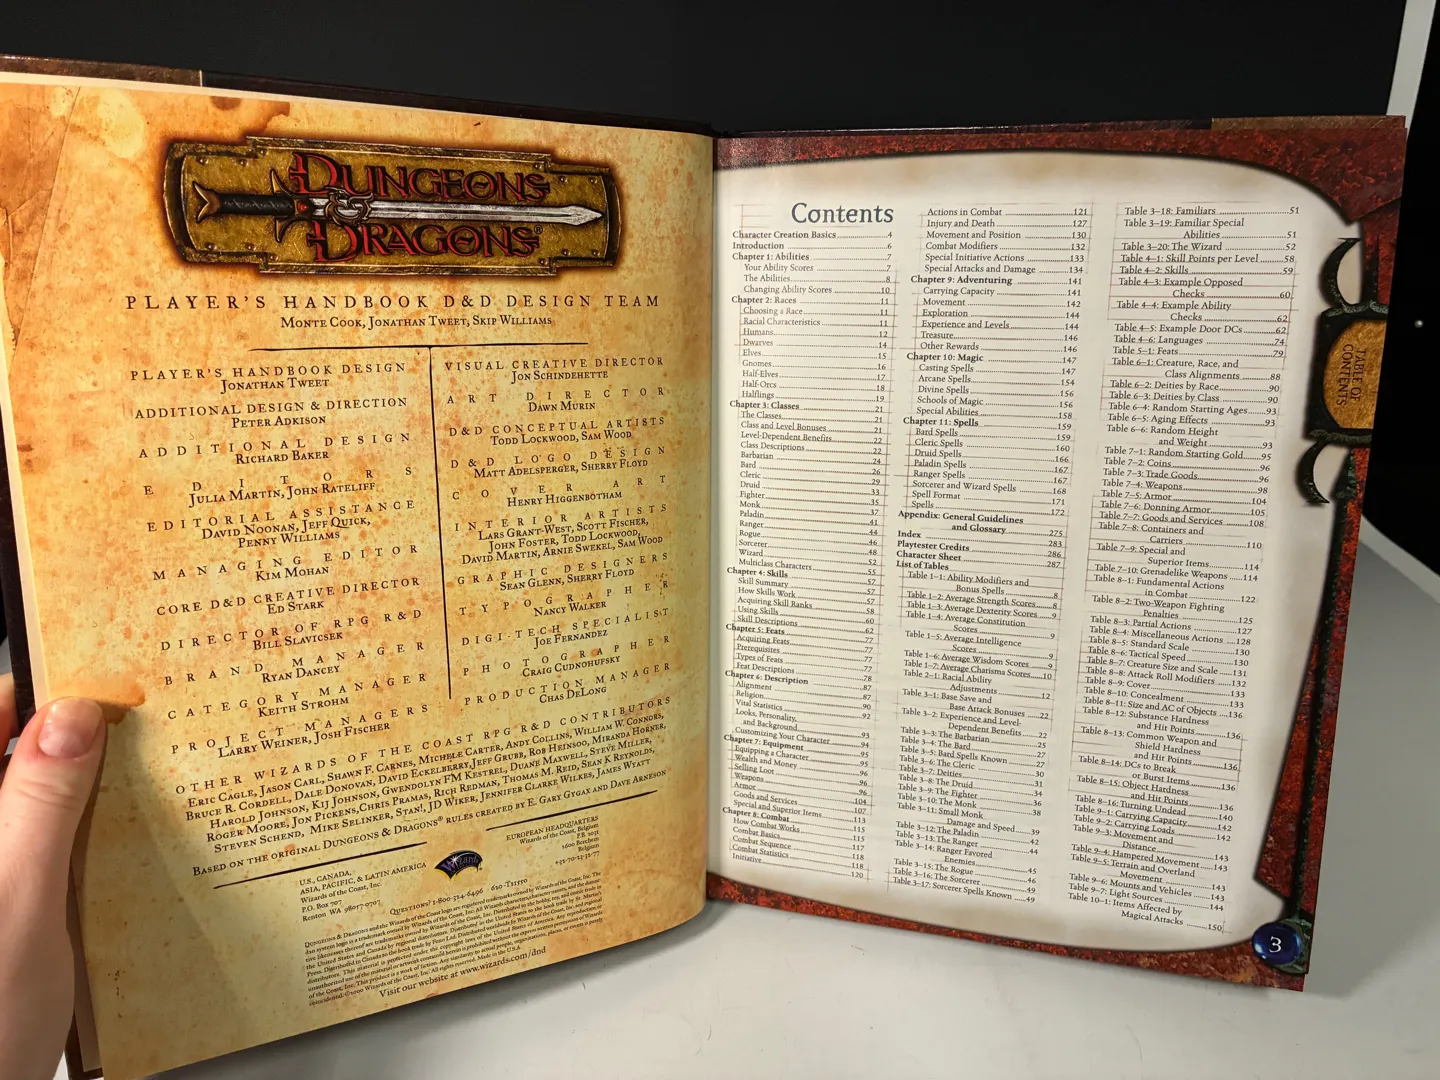 DUNGEONS
& DRAGONS®
PLAYER'S HANDBOOK D&D DESIGN TEAM
MONTE COOK, JONATHAN TWEET, SKIP WILLIAMS
PLAYER'S HANDBOOK DESIGN
JONATHAN TWEET
ADDITIONAL DESIGN & DIRECTION
PETER ADKISON
ADDITIONAL DESIGN
RICHARD BAKER
EDITORS
JULIA MARTIN, JOHN RATELIFF
EDITORIAL ASSISTANCE
DAVID NOONAN, JEFF QUICK,
PENNY WILLIAMS
MANAGING EDITOR
KIM MOHAN
CORE D&D CREATIVE DIRECTOR
ED STARK
DIRECTOR OF RPG R&D
BILL SLAVICSEK
BRAND MANAGER
RYAN DANCEY
CATEGORY MANAGER
KEITH STROHM
PROJECT MANAGERS
LARRY WEINER, JOSH FISCHER
VISUAL CREATIVE DIRECTOR
JON SCHINDEHETTE
ART DIRECTOR
DAWN MURIN
D&D CONCEPTUAL ARTISTS
TODD LOCKWOOD, SAM WOOD
D&D LOGO DESIGN
MATT ADELSPERGER, SHERRY FLOYD
COVER ART
HENRY HIGGENBOTHAM
INTERIOR ARTISTS
LARS GRANT-WEST, SCOTT FISCHER,
JOHN FOSTER, TODD LOCKWOOD,
DAVID MARTIN, ARNIE SWEKEL, SAM WOOD
GRAPHIC DESIGNERS
SEAN GLENN, SHERRY FLOYD
TYPOGRAPHER
NANCY WALKER
DIGI-TECH SPECIALIST
JOE FERNANDEZ
PHOTOGRAPHER
CRAIG CUDNOHUFSKY
PRODUCTION MANAGER
CHAS DELONG
OTHER WIZARDS OF THE COAST RPG R&D CONTRIBUTORS
ERIC CAGLE, JASON CARL, SHAWN F. CARNES, MICHELE CARTER, ANDY COLLINS, WILLIAM W. CONNORS,
BRUCE R. CORDELL, DALE DONOVAN, DAVID ECKELBERRY, JEFF GRUBB, ROB HEINSOO, MIRANDA HORNER,
HAROLD JOHNSON, KIJ JOHNSON, GWENDOLYN FM KESTREL, DUANE MAXWELL, STEVE MILLER,
ROGER MOORE, JON PICKENS, CHRIS PRAMAS, RICH REDMAN, THOMAS M. REID, SEAN K REYNOLDS,
STEVEN SCHEND, MIKE SELINKER, STAN!, JD WIKER, JENNIFER CLARKE WILKES, JAMES WYATT
BASED ON THE ORIGINAL DUNGEONS & DRAGONS® RULES CREATED BY E. GARY GYGAX AND DAVE ARNESON
U.S., CANADA,
ASIA, PACIFIC, & LATIN AMERICA
Wizards of the Coast, Inc.
P.O. Box 707
Renton WA 98057-0707
Wizards
EUROPEAN HEADQUARTERS
Wizards of the Coast, Belgium
P.B. 2031
2600 Berchem
Belgium
+32-70-23-32-77
QUESTIONS? 1-800-324-6496 620-T11550
Visit our website at www.wizards.com/dnd
Contents
Character Creation Basics 4
Introduction 6
Chapter 1: Abilities 7
Your Ability Scores 7
The Abilities 8
Changing Ability Scores 10
Chapter 2: Races 11
Choosing a Race 11
Racial Characteristics 11
Humans 12
Dwarves 14
Elves 15
Gnomes 16
Half-Elves 17
Half-Orcs 18
Halflings 19
Chapter 3: Classes 21
The Classes 21
Class and Level Bonuses 21
Level-Dependent Benefits 22
Class Descriptions 22
Barbarian 24
Bard 26
Cleric 29
Druid 33
Fighter 35
Monk 37
Paladin 41
Ranger 44
Rogue 46
Sorcerer 48
Wizard 52
Multiclass Characters 55
Chapter 4: Skills 57
Skill Summary 57
How Skills Work 57
Acquiring Skill Ranks 58
Using Skills 60
Skill Descriptions 62
Chapter 5: Feats 77
Acquiring Feats 77
Prerequisites 77
Types of Feats 77
Feat Descriptions 78
Chapter 6: Description 87
Alignment 87
Religion 90
Vital Statistics 92
Looks, Personality,
and Background 93
Customizing Your Character 94
Chapter 7: Equipment 95
Equipping a Character 95
Wealth and Money 96
Selling Loot 96
Weapons 96
Armor 104
Goods and Services 107
Special and Superior Items 113
Chapter 8: Combat 115
How Combat Works 115
Combat Basics 117
Combat Sequence 118
Combat Statistics 118
Initiative 120
Actions in Combat 121
Injury and Death 127
Movement and Position 130
Combat Modifiers 132
Special Initiative Actions 133
Special Attacks and Damage 134
Chapter 9: Adventuring 141
Carrying Capacity 141
Movement 142
Exploration 144
Experience and Levels 144
Treasure 146
Other Rewards 146
Chapter 10: Magic 147
Casting Spells 147
Arcane Spells 154
Divine Spells 156
Schools of Magic 156
Special Abilities 158
Chapter 11: Spells 159
Bard Spells 159
Cleric Spells 160
Druid Spells 166
Paladin Spells 167
Ranger Spells 167
Sorcerer and Wizard Spells 168
Spell Format 171
Spells 172
Appendix: General Guidelines
and Glossary 275
Index 283
Playtester Credits 286
Character Sheet 287
List of Tables
Table 1–1: Ability Modifiers and
Bonus Spells 8
Table 1–2: Average Strength Scores 8
Table 1–3: Average Dexterity Scores 9
Table 1–4: Average Constitution
Scores 9
Table 1–5: Average Intelligence
Scores 9
Table 1–6: Average Wisdom Scores 9
Table 1–7: Average Charisma Scores 10
Table 2–1: Racial Ability
Adjustments 12
Table 3–1: Base Save and
Base Attack Bonuses 22
Table 3–2: Experience and Level-
Dependent Benefits 22
Table 3–3: The Barbarian 25
Table 3–4: The Bard 27
Table 3–5: Bard Spells Known 27
Table 3–6: The Cleric 30
Table 3–7: Deities 31
Table 3–8: The Druid 34
Table 3–9: The Fighter 36
Table 3–10: The Monk 38
Table 3–11: Small Monk
Damage and Speed 39
Table 3–12: The Paladin 42
Table 3–13: The Ranger 44
Table 3–14: Ranger Favored
Enemies 45
Table 3–15: The Rogue 46
Table 3–16: The Sorcerer 49
Table 3–17: Sorcerer Spells Known 49
Table 3–18: Familiars 51
Table 3–19: Familiar Special
Abilities 51
Table 3–20: The Wizard 52
Table 4–1: Skill Points per Level 58
Table 4–2: Skills 59
Table 4–3: Example Opposed
Checks 60
Table 4–4: Example Ability
Checks 62
Table 4–5: Example Door DCs 62
Table 4–6: Languages 74
Table 5–1: Feats 79
Table 6–1: Creature, Race, and
Class Alignments 88
Table 6–2: Deities by Race 90
Table 6–3: Deities by Class 90
Table 6–4: Random Starting Ages 93
Table 6–5: Aging Effects 93
Table 6–6: Random Height
and Weight 93
Table 7–1: Random Starting Gold 95
Table 7–2: Coins 96
Table 7–3: Trade Goods 96
Table 7–4: Weapons 98
Table 7–5: Armor 104
Table 7–6: Donning Armor 105
Table 7–7: Goods and Services 108
Table 7–8: Containers and
Carriers 110
Table 7–9: Special and
Superior Items 114
Table 7–10: Grenadelike Weapons 114
Table 8–1: Fundamental Actions
in Combat 122
Table 8–2: Two-Weapon Fighting
Penalties 125
Table 8–3: Partial Actions 127
Table 8–4: Miscellaneous Actions 128
Table 8–5: Standard Scale 130
Table 8–6: Tactical Speed 130
Table 8–7: Creature Size and Scale 131
Table 8–8: Attack Roll Modifiers 132
Table 8–9: Cover 133
Table 8–10: Concealment 133
Table 8–11: Size and AC of Objects 136
Table 8–12: Substance Hardness
and Hit Points 136
Table 8–13: Common Weapon and
Shield Hardness
and Hit Points 136
Table 8–14: DCs to Break
or Burst Items 136
Table 8–15: Object Hardness
and Hit Points 136
Table 8–16: Turning Undead 140
Table 9–1: Carrying Capacity 142
Table 9–2: Carrying Loads 142
Table 9–3: Movement and
Distance 143
Table 9–4: Hampered Movement 143
Table 9–5: Terrain and Overland
Movement 143
Table 9–6: Mounts and Vehicles 143
Table 9–7: Light Sources 144
Table 10–1: Items Affected by
Magical Attacks 150
TABLE OF
CONTENTS
3